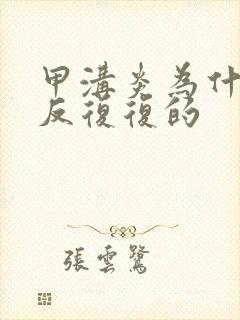 甲溝炎為什
反復復的
張雲鷺